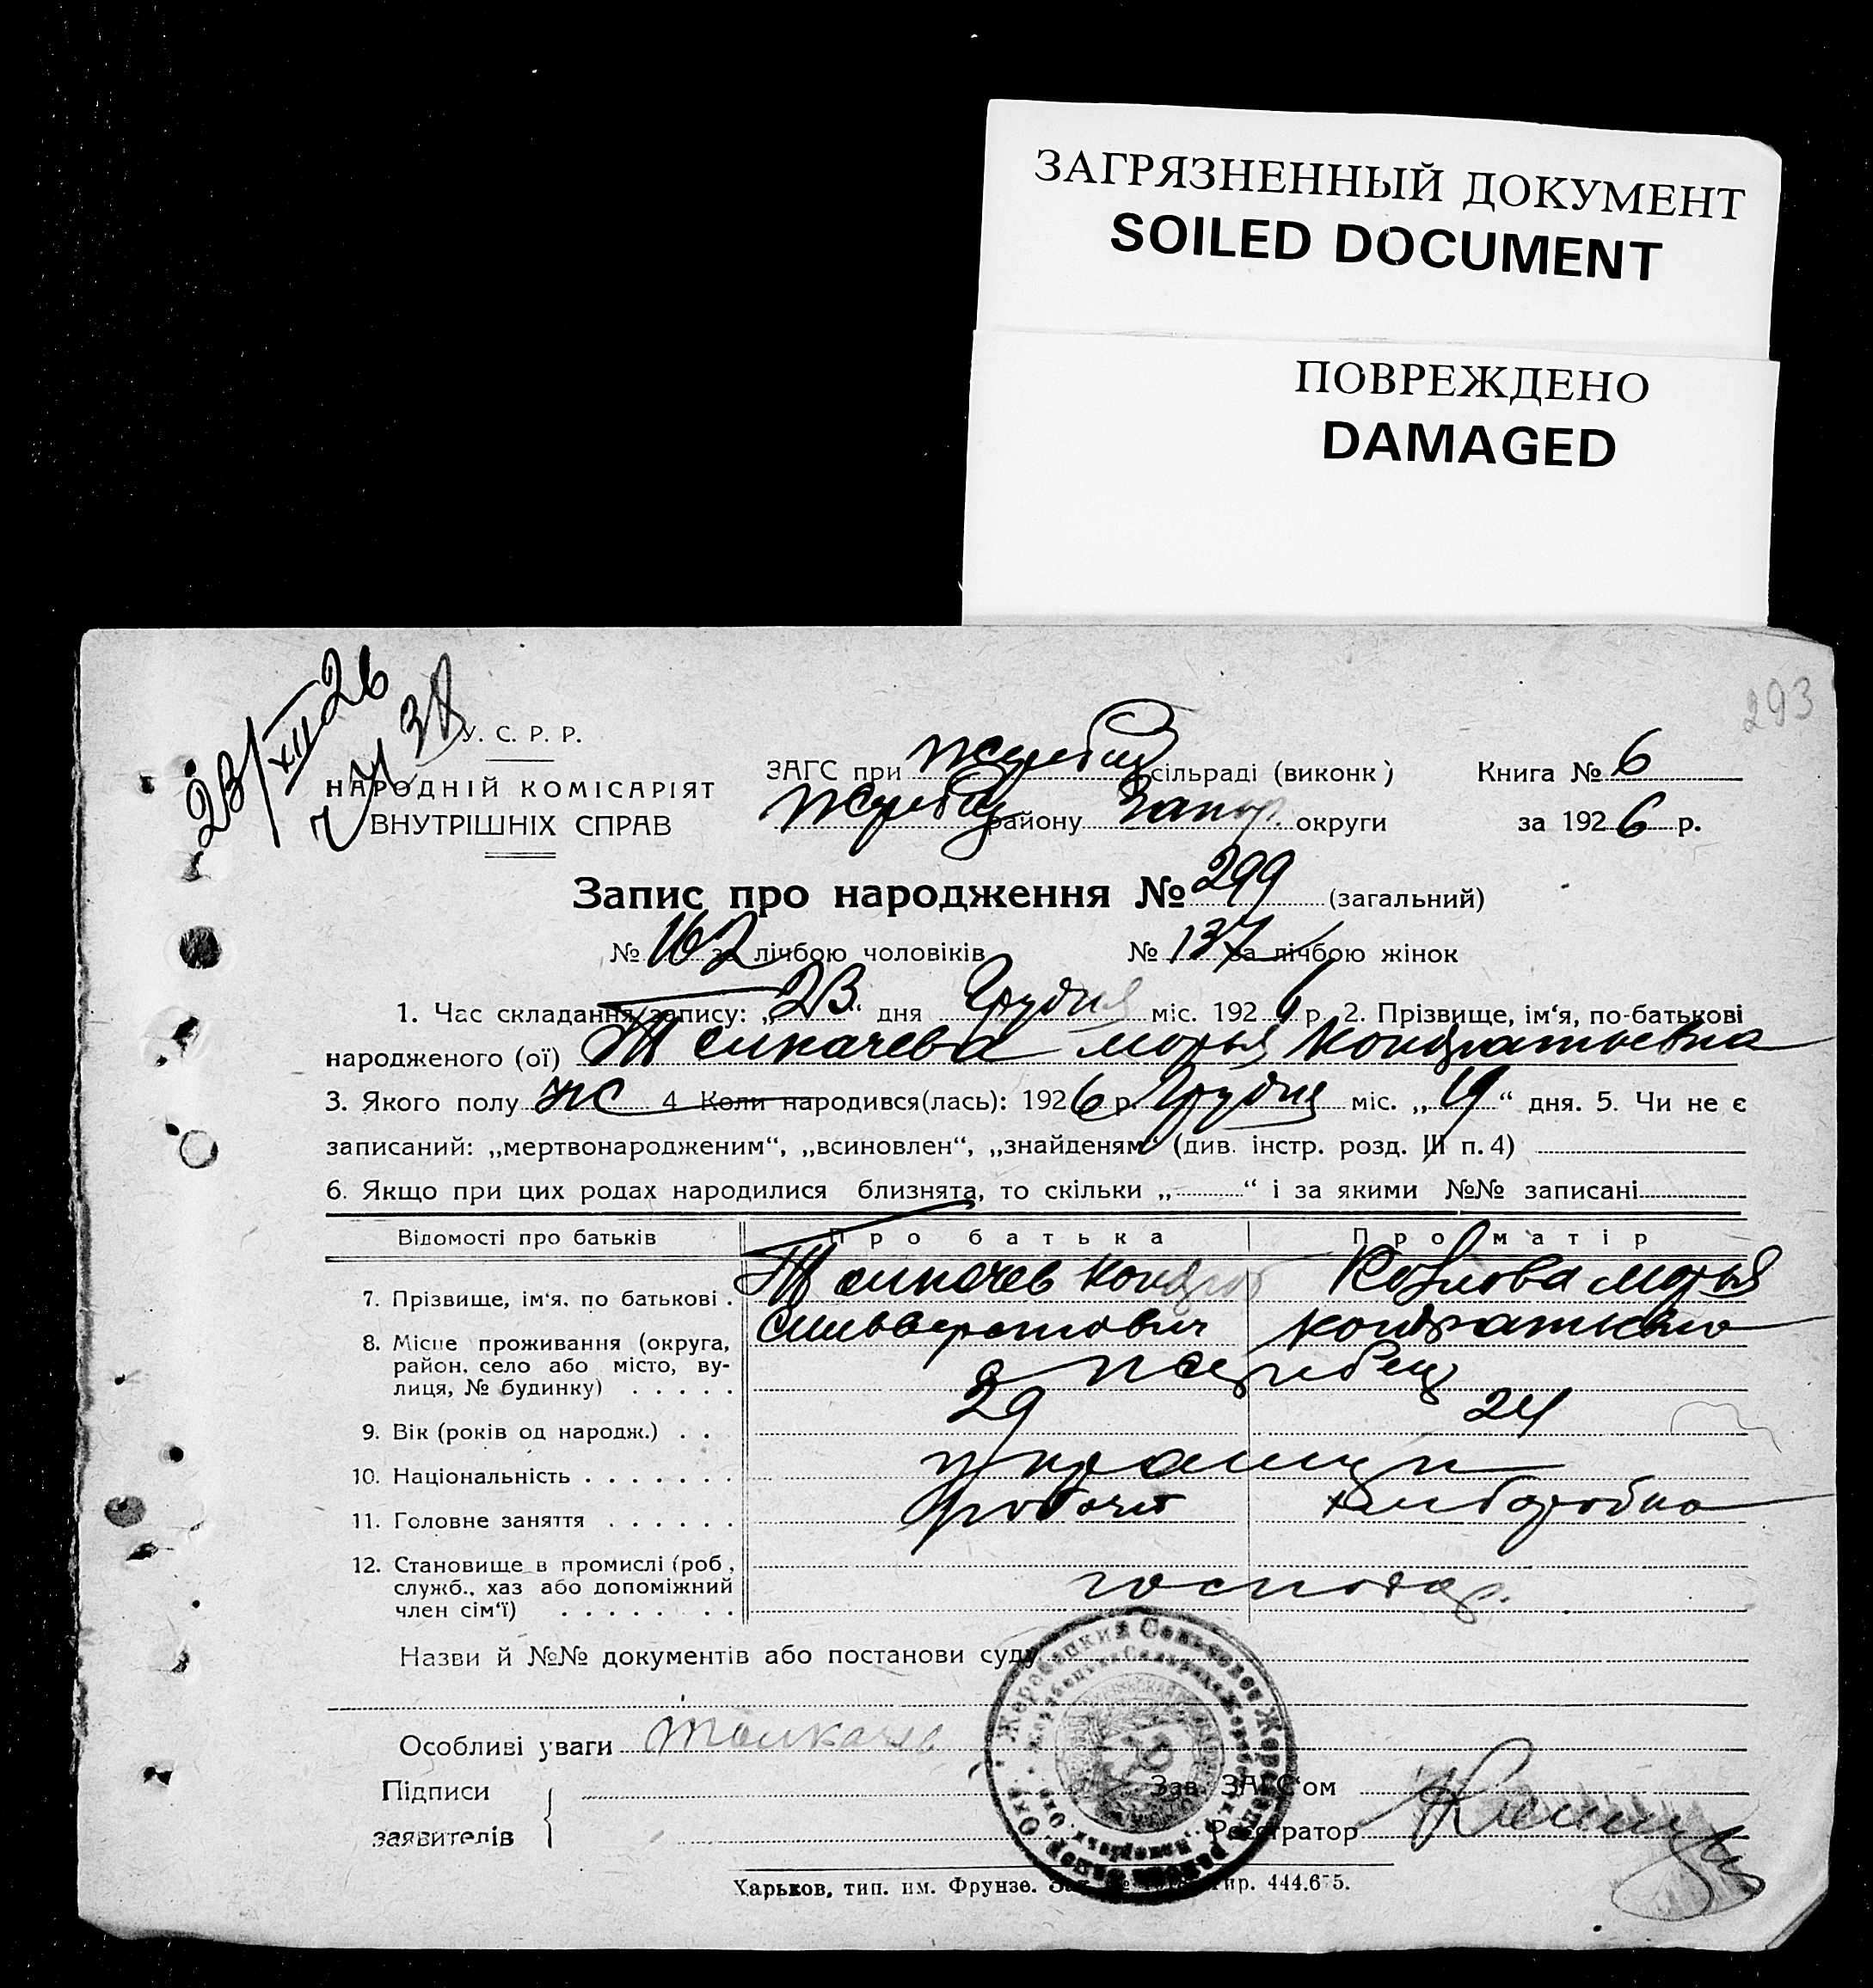 ЗАГРЯЗНЕННЫЙ ДОКУМЕНТ
SOILED DOCUMENT
ПОВРЕЖДЕНО
DAMAGED
293
23/XII 26
У. С. Р. Р.
НАРОДНІЙ КОМІСАРІЯТ
ВНУТРІШНІХ СПРАВ
ЗАГС при Жеребец сільраді (виконк) Книга № 6
Жеребец району Запор. округи за 1926 р.
Запис про народження № 299 (загальний)
№ 162 за лічбою чоловіків № 137 за лічбою жінок
1. Час складання запису: „23“ дня Грудня міс. 1926 р. 2. Прізвище, ім‘я, по-батькові
народженого (ої) Толкачева Марья Кондратьевна
3. Якого полу ж 4 Коли народився(лась): 1926 р. Грудня міс. „19“ дня. 5. Чи не є
записаний: „мертвонародженим“, „всиновлен“, „знайденям“ (див. інстр. розд. III п. 4)
6. Якщо при цих родах народилися близнята, то скільки „ “ і за якими №№ записані
Відомості про батьків Про батька Про матір
7. Прізвище, ім‘я, по батькові . Толкачев Кондрат Козлова Марья
Сильверстович Кондратьевна
8. Місце проживання (округа,
район, село або місто, ву-
лиця, № будинку) . . . . . Жеребец
9. Вік (років од народж.) . . 29 24
10. Національність . . . . . . . украинц
11. Головне заняття . . . . . . робочий хлиборобка
12. Становище в промислі (роб.,
служб., хаз або допоміжний
член сім‘ї) . . . . . . . господар.
Назви й №№ документів або постанови суду
Особливі уваги Толкачев
Підписи
заявителів
Зав. ЗАГС‘ом
Реєстратор
Харьков, тип. им. Фрунзе.